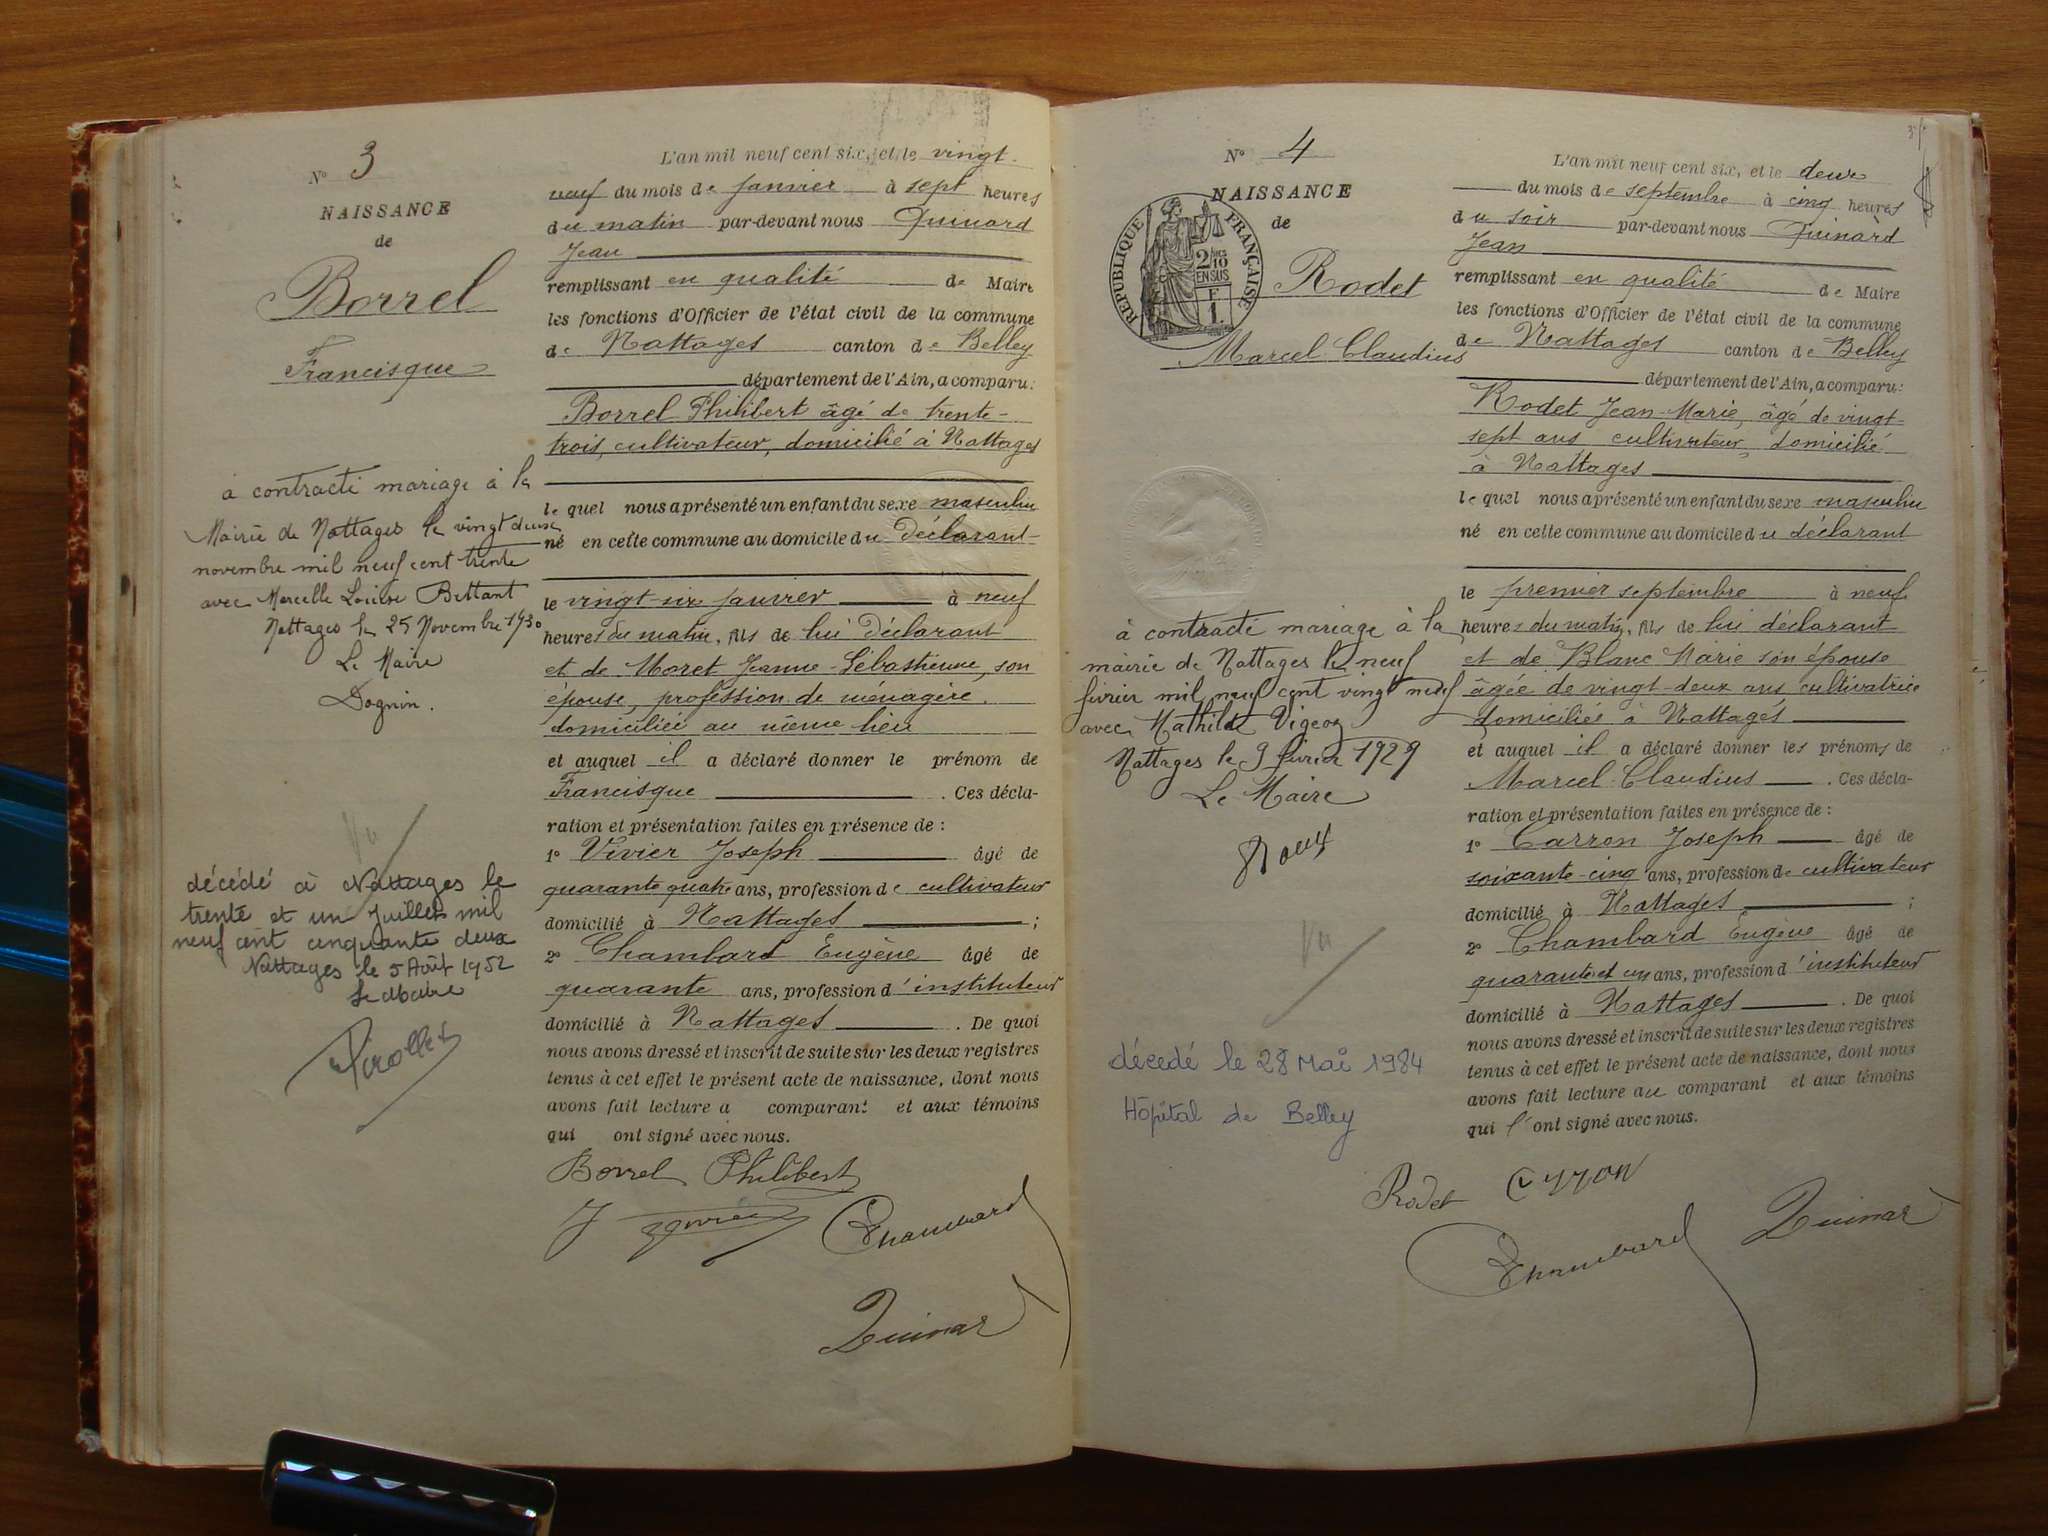 N° 3
NAISSANCE
de
Borrel
Francisque
a contracté mariage à la
Mairie de Nattages le vingt deux
novembre mil neuf cent trente
avec Marcelle Louise Bittant
Nattages le 25 Novembre 1930
Le Maire
Dognin.
Vu
décédé à Nattages le
trente et un Juillet mil
neuf cent cinquante deux
Nattages le 5 Août 1952
Le Maire
L'an mil neuf cent six, et le vingt
neuf du mois de janvier à sept heures
du matin par-devant nous Quinard
Jean
remplissant en qualité de Maire
les fonctions d'Officier de l'état civil de la commune
de Nattages canton de Belley
département de l'Ain, a comparu:
Borrel Philibert âgé de trente-
trois, cultivateur, domicilié à Nattages
le quel nous a présenté un enfant du sexe masculin
né en cette commune au domicile du Déclarant
le vingt-six janvier à neuf
heures du matin, fils de lui Déclarant
et de Moret Jeanne-Sébastienne, son
épouse, profession de ménagère.
domiciliée au même lieu
et auquel il a déclaré donner le prénom de
Francisque . Ces décla-
ration et présentation faites en présence de :
1° Vivier Joseph âgé de
quarante quatre ans, profession de cultivateur
domicilié à Nattages ;
2° Chambard Eugène âgé de
quarante ans, profession d'instituteur
domicilié à Nattages . De quoi
nous avons dressé et inscrit de suite sur les deux registres
tenus à cet effet le présent acte de naissance, dont nous
avons fait lecture a comparant et aux témoins
qui ont signé avec nous.
Borrel Philibert
Chambard
Quinard
N° 4
NAISSANCE
de
RÉPUBLIQUE FRANÇAISE
2/10
EN SUS
F
1.
Rodet
Marcel Claudius
a contracté mariage à la
mairie de Nattages le neuf
février mil neuf cent vingt neuf
avec Mathilde Vigeoz
Nattages le 9 février 1929
Le Maire
Roux
Vu
décedé le 28 Mai 1984
Hôpital de Belley
L'an mil neuf cent six, et le deux
du mois de septembre à cinq heures
du soir par-devant nous Quinard
Jean
remplissant en qualité de Maire
les fonctions d'Officier de l'état civil de la commune
de Nattages canton de Belley
département de l'Ain, a comparu:
Rodet Jean-Marie, âgé de vingt-
sept ans cultivateur, domicilié
à Nattages
le quel nous a présenté un enfant du sexe masculin
né en cette commune au domicile du déclarant
le premier septembre à neuf
heures du matin, fils de lui déclarant
et de Blanc Marie son épouse
âgée de vingt-deux ans cultivatrice
domiciliée à Nattages
et auquel il a déclaré donner les prénoms de
Marcel Claudius . Ces décla-
ration et présentation faites en présence de :
1° Carron Joseph âgé de
soixante-cinq ans, profession de cultivateur
domicilié à Nattages ;
2° Chambard Eugène âgé de
quarante et un ans, profession d'instituteur
domicilié à Nattages . De quoi
nous avons dressé et inscrit de suite sur les deux registres
tenus à cet effet le présent acte de naissance, dont nous
avons fait lecture au comparant et aux témoins
qui l'ont signé avec nous.
Rodet Carron
Chambard Quinard